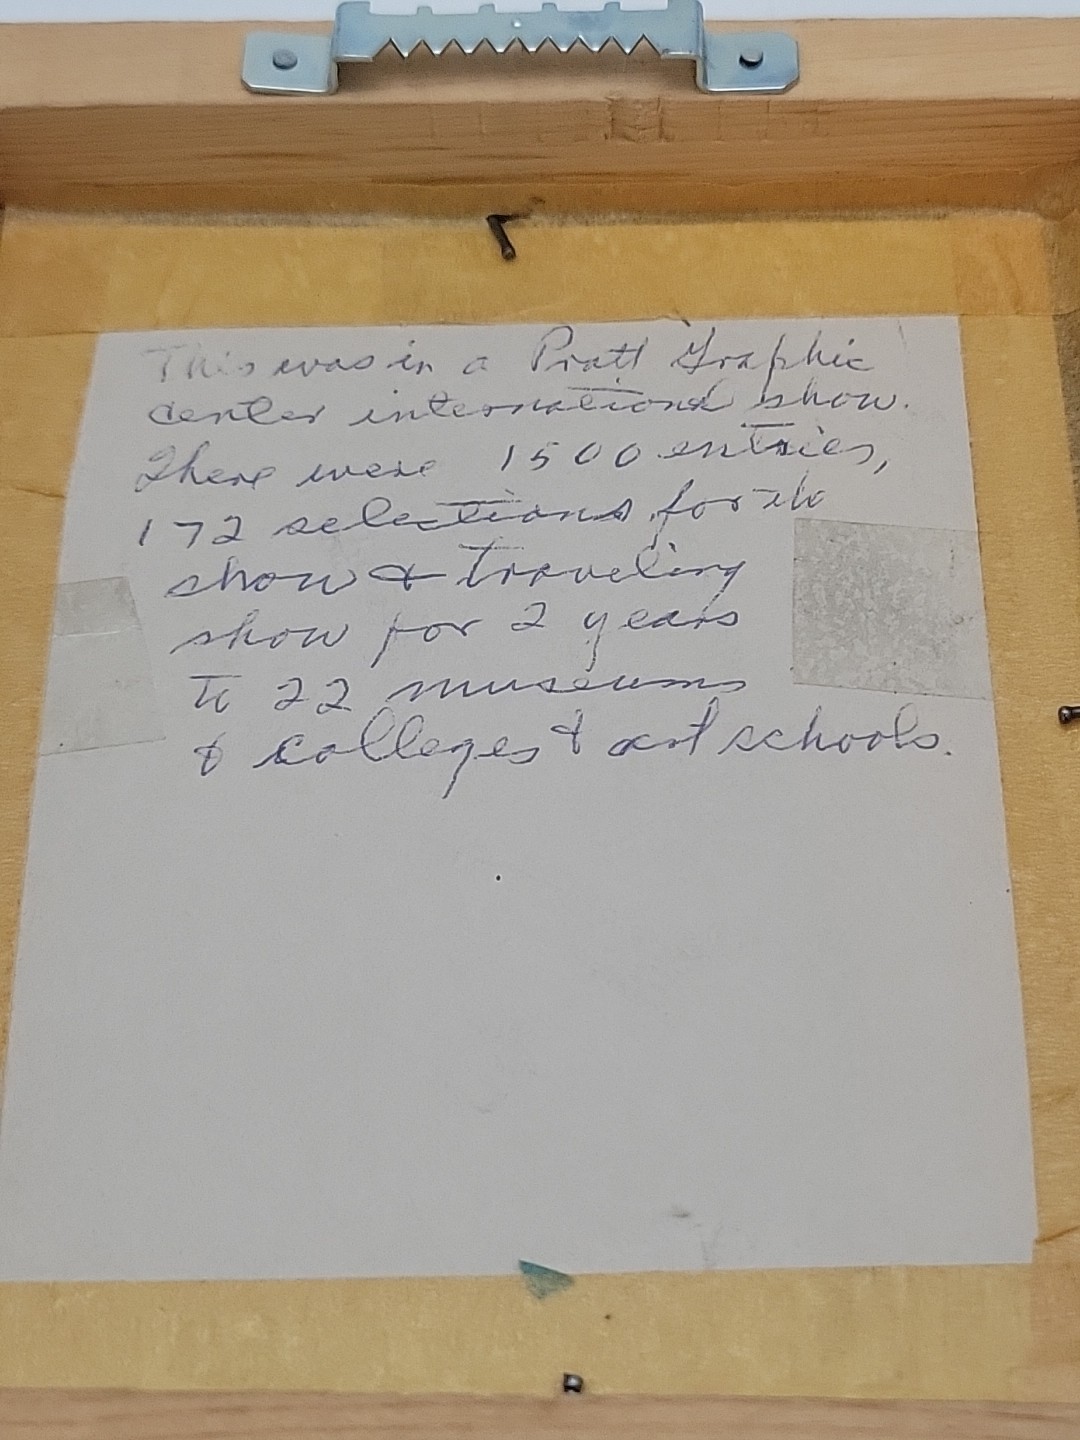 This was in a Pratt Graphic
center international show.
There were 1500 entries,
172 selections for the
show & traveling
show for 2 years
to 22 museums
& colleges & art schools.